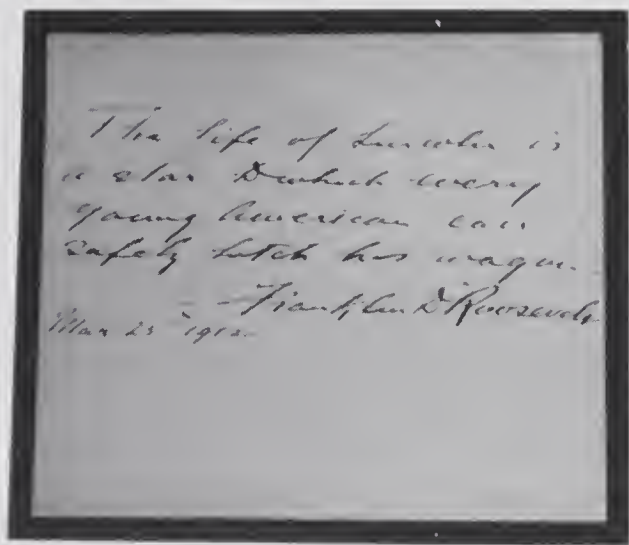 The life of Lincoln is
a star to which every
young American can
safely hitch his wagon.
Franklin D Roosevelt
Mar 25 1912